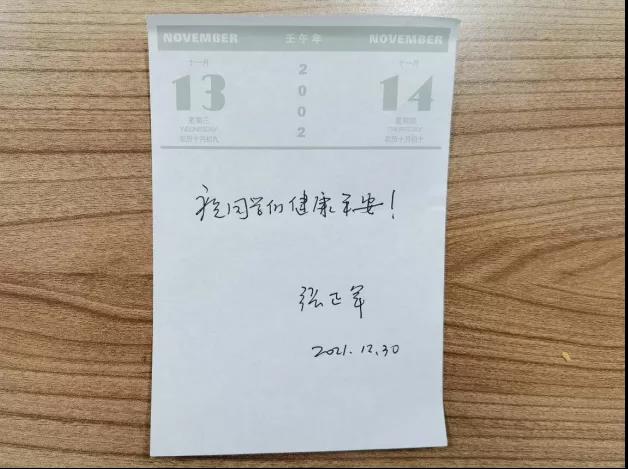 NOVEMBER 壬午年 NOVEMBER
十一月 2002 十一月
13 14
星期三 星期四
WEDNESDAY THURSDAY
农历十月初九 农历十月初十
祝同学们健康平安！
张正军
2021.12.30